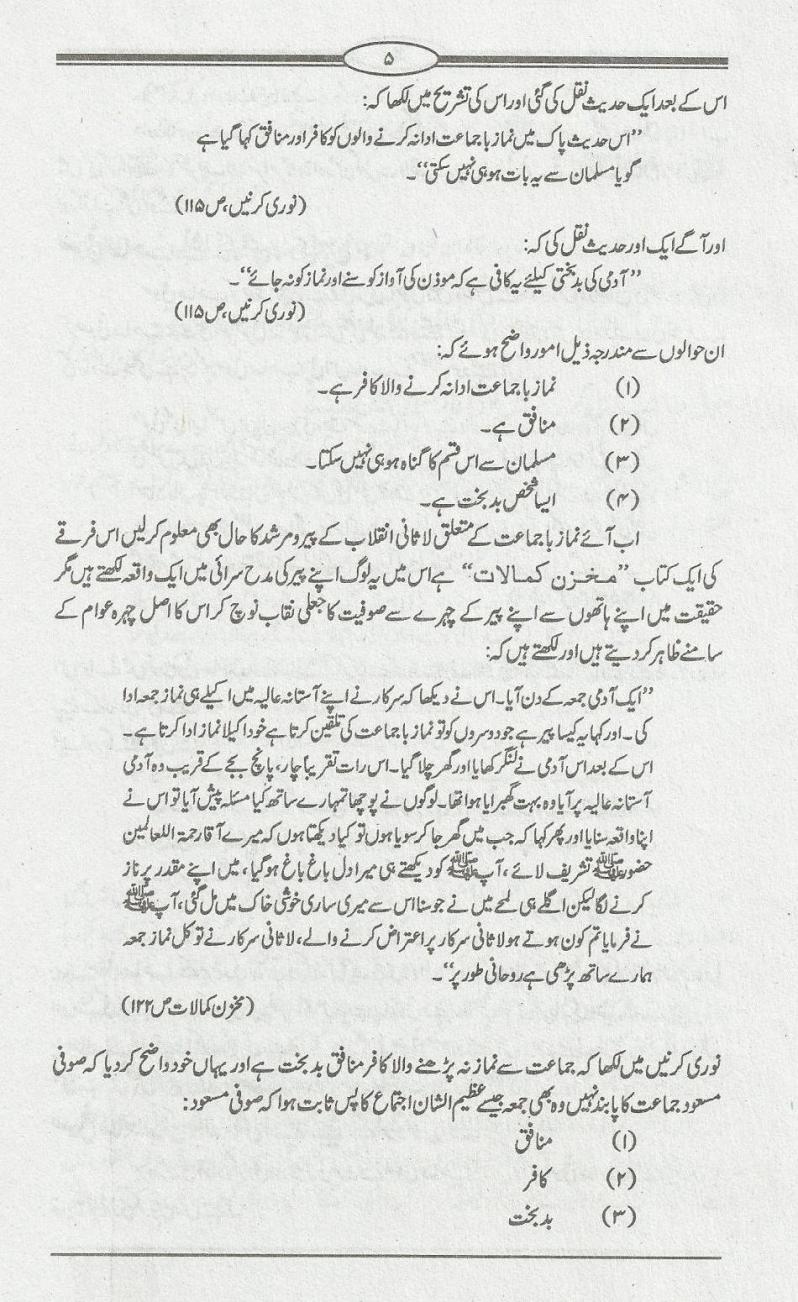 ۵
اس کے بعد ایک حدیث نقل کی گئی اور اس کی تشریح میں لکھا کہ:
’’اس حدیث پاک میں نماز باجماعت ادا نہ کرنے والوں کو کافر اور منافق کہا گیا ہے
گویا مسلمان سے یہ بات ہو ہی نہیں سکتی‘‘۔
(نوری کرنیں، ص ۱۱۵)
اور آگے ایک اور حدیث نقل کی کہ:
’’آدمی کی بدبختی کیلئے یہ کافی ہے کہ موذن کی آواز کو سنے اور نماز کو نہ جائے‘‘۔
(نوری کرنیں، ص ۱۱۵)
ان حوالوں سے مندرجہ ذیل امور واضح ہوئے کہ:
(۱) نماز باجماعت ادا نہ کرنے والا کافر ہے۔
(۲) منافق ہے۔
(۳) مسلمان سے اس قسم کا گناہ ہو ہی نہیں سکتا۔
(۴) ایسا شخص بدبخت ہے۔
اب آئے نماز باجماعت کے متعلق لاثانی انقلاب کے پیر و مرشد کا حال بھی معلوم کر لیں اس فرقے
کی ایک کتاب ’’مخزن کمالات‘‘ ہے اس میں یہ لوگ اپنے پیر کی مدح سرائی میں ایک واقعہ لکھتے ہیں مگر
حقیقت میں اپنے ہاتھوں سے اپنے پیر کے چہرے سے صوفیت کا جعلی نقاب نوچ کر اس کا اصل چہرہ عوام کے
سامنے ظاہر کر دیتے ہیں اور لکھتے ہیں کہ:
’’ایک آدمی جمعہ کے دن آیا۔ اس نے دیکھا کہ سرکار نے اپنے آستانہ عالیہ میں اکیلے ہی نماز جمعہ ادا
کی۔ اور کہا یہ کیسا پیر ہے جو دوسروں کو تو نماز باجماعت کی تلقین کرتا ہے خود اکیلا نماز ادا کرتا ہے۔
اس کے بعد اس آدمی نے لنگر کھایا اور گھر چلا گیا۔ اس رات تقریبا چار، پانچ بجے کے قریب وہ آدمی
آستانہ عالیہ پر آیا وہ بہت گھبرایا ہوا تھا۔ لوگوں نے پوچھا تمہارے ساتھ کیا مسئلہ پیش آیا تو اس نے
اپنا واقعہ سنایا اور پھر کہا کہ جب میں گھر جا کر سویا ہوں تو کیا دیکھتا ہوں کہ میرے آقا رحمۃ اللعالمین
حضور ﷺ تشریف لائے، آپ ﷺ کو دیکھتے ہی میرا دل باغ باغ ہو گیا، میں اپنے مقدر پر ناز
کرنے لگا لیکن اگلے ہی لمحے میں نے جو سنا اس سے میری ساری خوشی خاک میں مل گئی، آپ ﷺ
نے فرمایا تم کون ہوتے ہو لاثانی سرکار پر اعتراض کرنے والے، لاثانی سرکار نے تو کل نماز جمعہ
ہمارے ساتھ پڑھی ہے روحانی طور پر‘‘۔
(مخزن کمالات ص ۱۲۲)
نوری کرنیں میں لکھا کہ جماعت سے نماز نہ پڑھنے والا کافر منافق بدبخت ہے اور یہاں خود واضح کر دیا کہ صوفی
مسعود جماعت کا پابند نہیں وہ بھی جمعہ جیسے عظیم الشان اجتماع کا پس ثابت ہوا کہ صوفی مسعود:
(۱) منافق
(۲) کافر
(۳) بدبخت